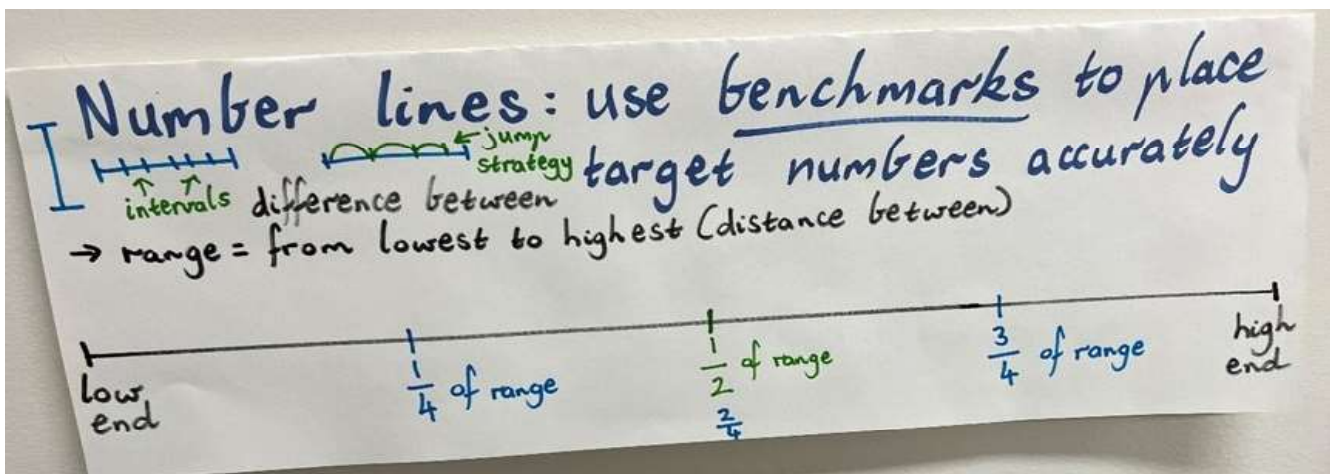 Number lines: use benchmarks to place
target numbers accurately
← jump
strategy
intervals
difference between
→ range = from lowest to highest (distance between)
low end
1/4 of range
1/2 of range
2/4
3/4 of range
high end